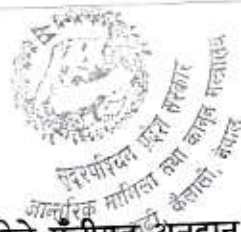 सुदूरपश्चिम प्रदेश सरकार
आन्तरिक मामिला तथा कानून मन्त्रालय
कैलाली, नेपाल
पूँजीगत अनुदान